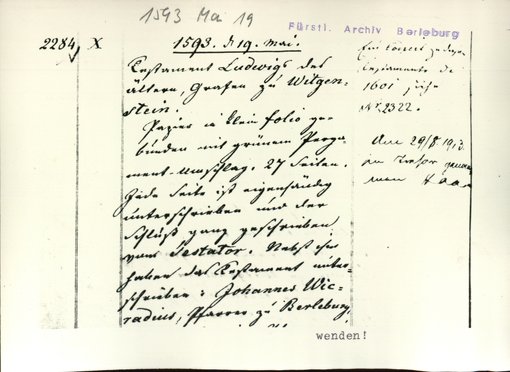 1593 Mai 19
Fürstl. Archiv Berleburg
2284 X
1593. d. 19. Mai.
Testament Ludwigs des
ältern, Grafen zu Witgen-
stein.
Papier in klein folio ge-
bunden mit grünem Perga-
ment-Umschlag. 27 Seiten.
Jede Seite ist eigenhändig
unterschrieben und der
Schluß ganz geschrieben
vom Testator. Nebst ihm
haben das Testament unter-
schrieben: Johannes Wic-
radius, Pfarrer zu Berleburg,
Ein
Testamente de
1601 siehe
Nr. 2322.
Am 29/8.
Tresor genom
men Haa
wenden!